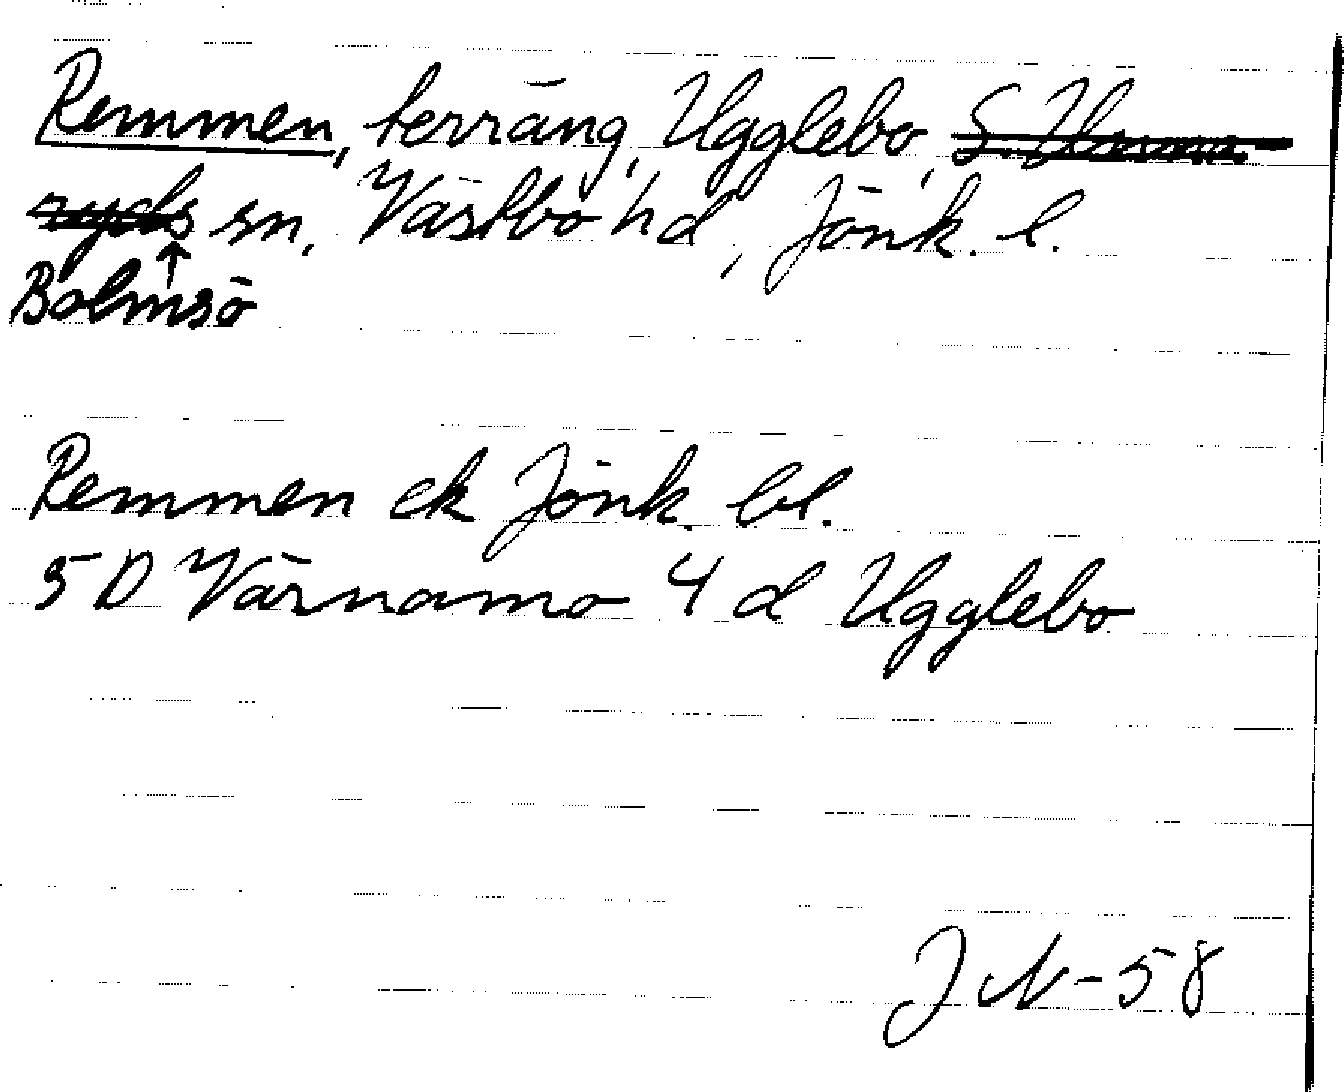 Remmen, terräng, Ugglebo, S. Unna-
ryds sn, Västbo hd, Jönk. l.
Bolmsö
Remmen ek Jönk. bl.
5 D Värnamo 4 d Ugglebo
J N-58